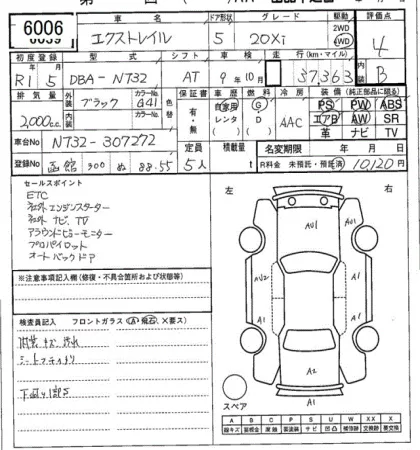 6006
車名 ドア形状 グレード 駆動 評価点
エクストレイル 5 20Xi 2WD 4WD 4
初度登録 型式 シフト 車検 走行(km・マイル) 内装
R1 5 DBA-NT32 AT 9年10月 37,363 B
排気量 外装 ブラック カラーNo. G41 色替 保証書 車歴 燃料 冷房 装備(純正部品に限る)
2,000cc 内装 カラーNo. 有・無 自家用 レンタ G D AAC PS PW ABS
エアB AW SR
革 ナビ TV
車台No NT32-307272 定員 積載量 名変期限 年 月 日
登録No 函館 300 ぬ 88-55 5人 t R料金 未預託・預託済 10,120円
セールスポイント
ETC
社外エンジンスターター
社外ナビ TV
アラウンドビューモニター
プロパイロット
オートバックドア
※注意事項記入欄(修復・不具合箇所および状態等)
検査員記入 フロントガラス(A・飛石・X要ス)
内装キズ 汚れ
シート
下廻り
左 右
AU1
A1
AU2 A1
A1
A2
A1
スペア
A B C P S U W X XX
線キズ 交換跡 要交換